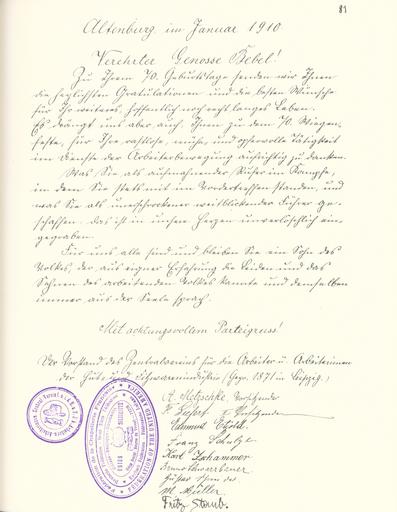 81
Altenburg im Januar 1910
Verehrter Genosse Bebel!
Zu Ihrem 70. Geburtstage senden wir Ihnen
die herzlichsten Gratulationen und die besten Wünsche
für Ihr weiteres, hoffentlich noch recht langes Leben.
Es drängt uns aber auch, Ihnen zu dem 70. Wiegen-
feste, für Ihre rastlose, mühe- und opfervolle Tätigkeit
im Dienste der Arbeiterbewegung aufrichtig zu danken.
Was Sie als aufmahnender Rufer im Kampfe,
in dem Sie stets mit im Vordertreffen standen, und
was Sie als unerschrockener weitblickender Führer ge-
schaffen, das ist in unsere Herzen unverlöschlich ein-
gegraben.
Für uns alle sind und bleiben Sie ein Sohn des
Volkes, der aus eigner Erfahrung die Leiden und das
Sehnen des arbeitenden Volkes kannte und demselben
immer aus der Seele sprach.
Mit achtungsvollem Parteigruss!
Der Vorstand des Zentralvereins für die Arbeiter u. Arbeiterinnen
der Hut- und Filzwarenindustrie (Gegr. 1871 in Leipzig.)
A. Metzschke, Vorsitzender
2. Vorsitzender
Franz Schulze
Karl Tzschammer
M. Müller
Fritz Staub.